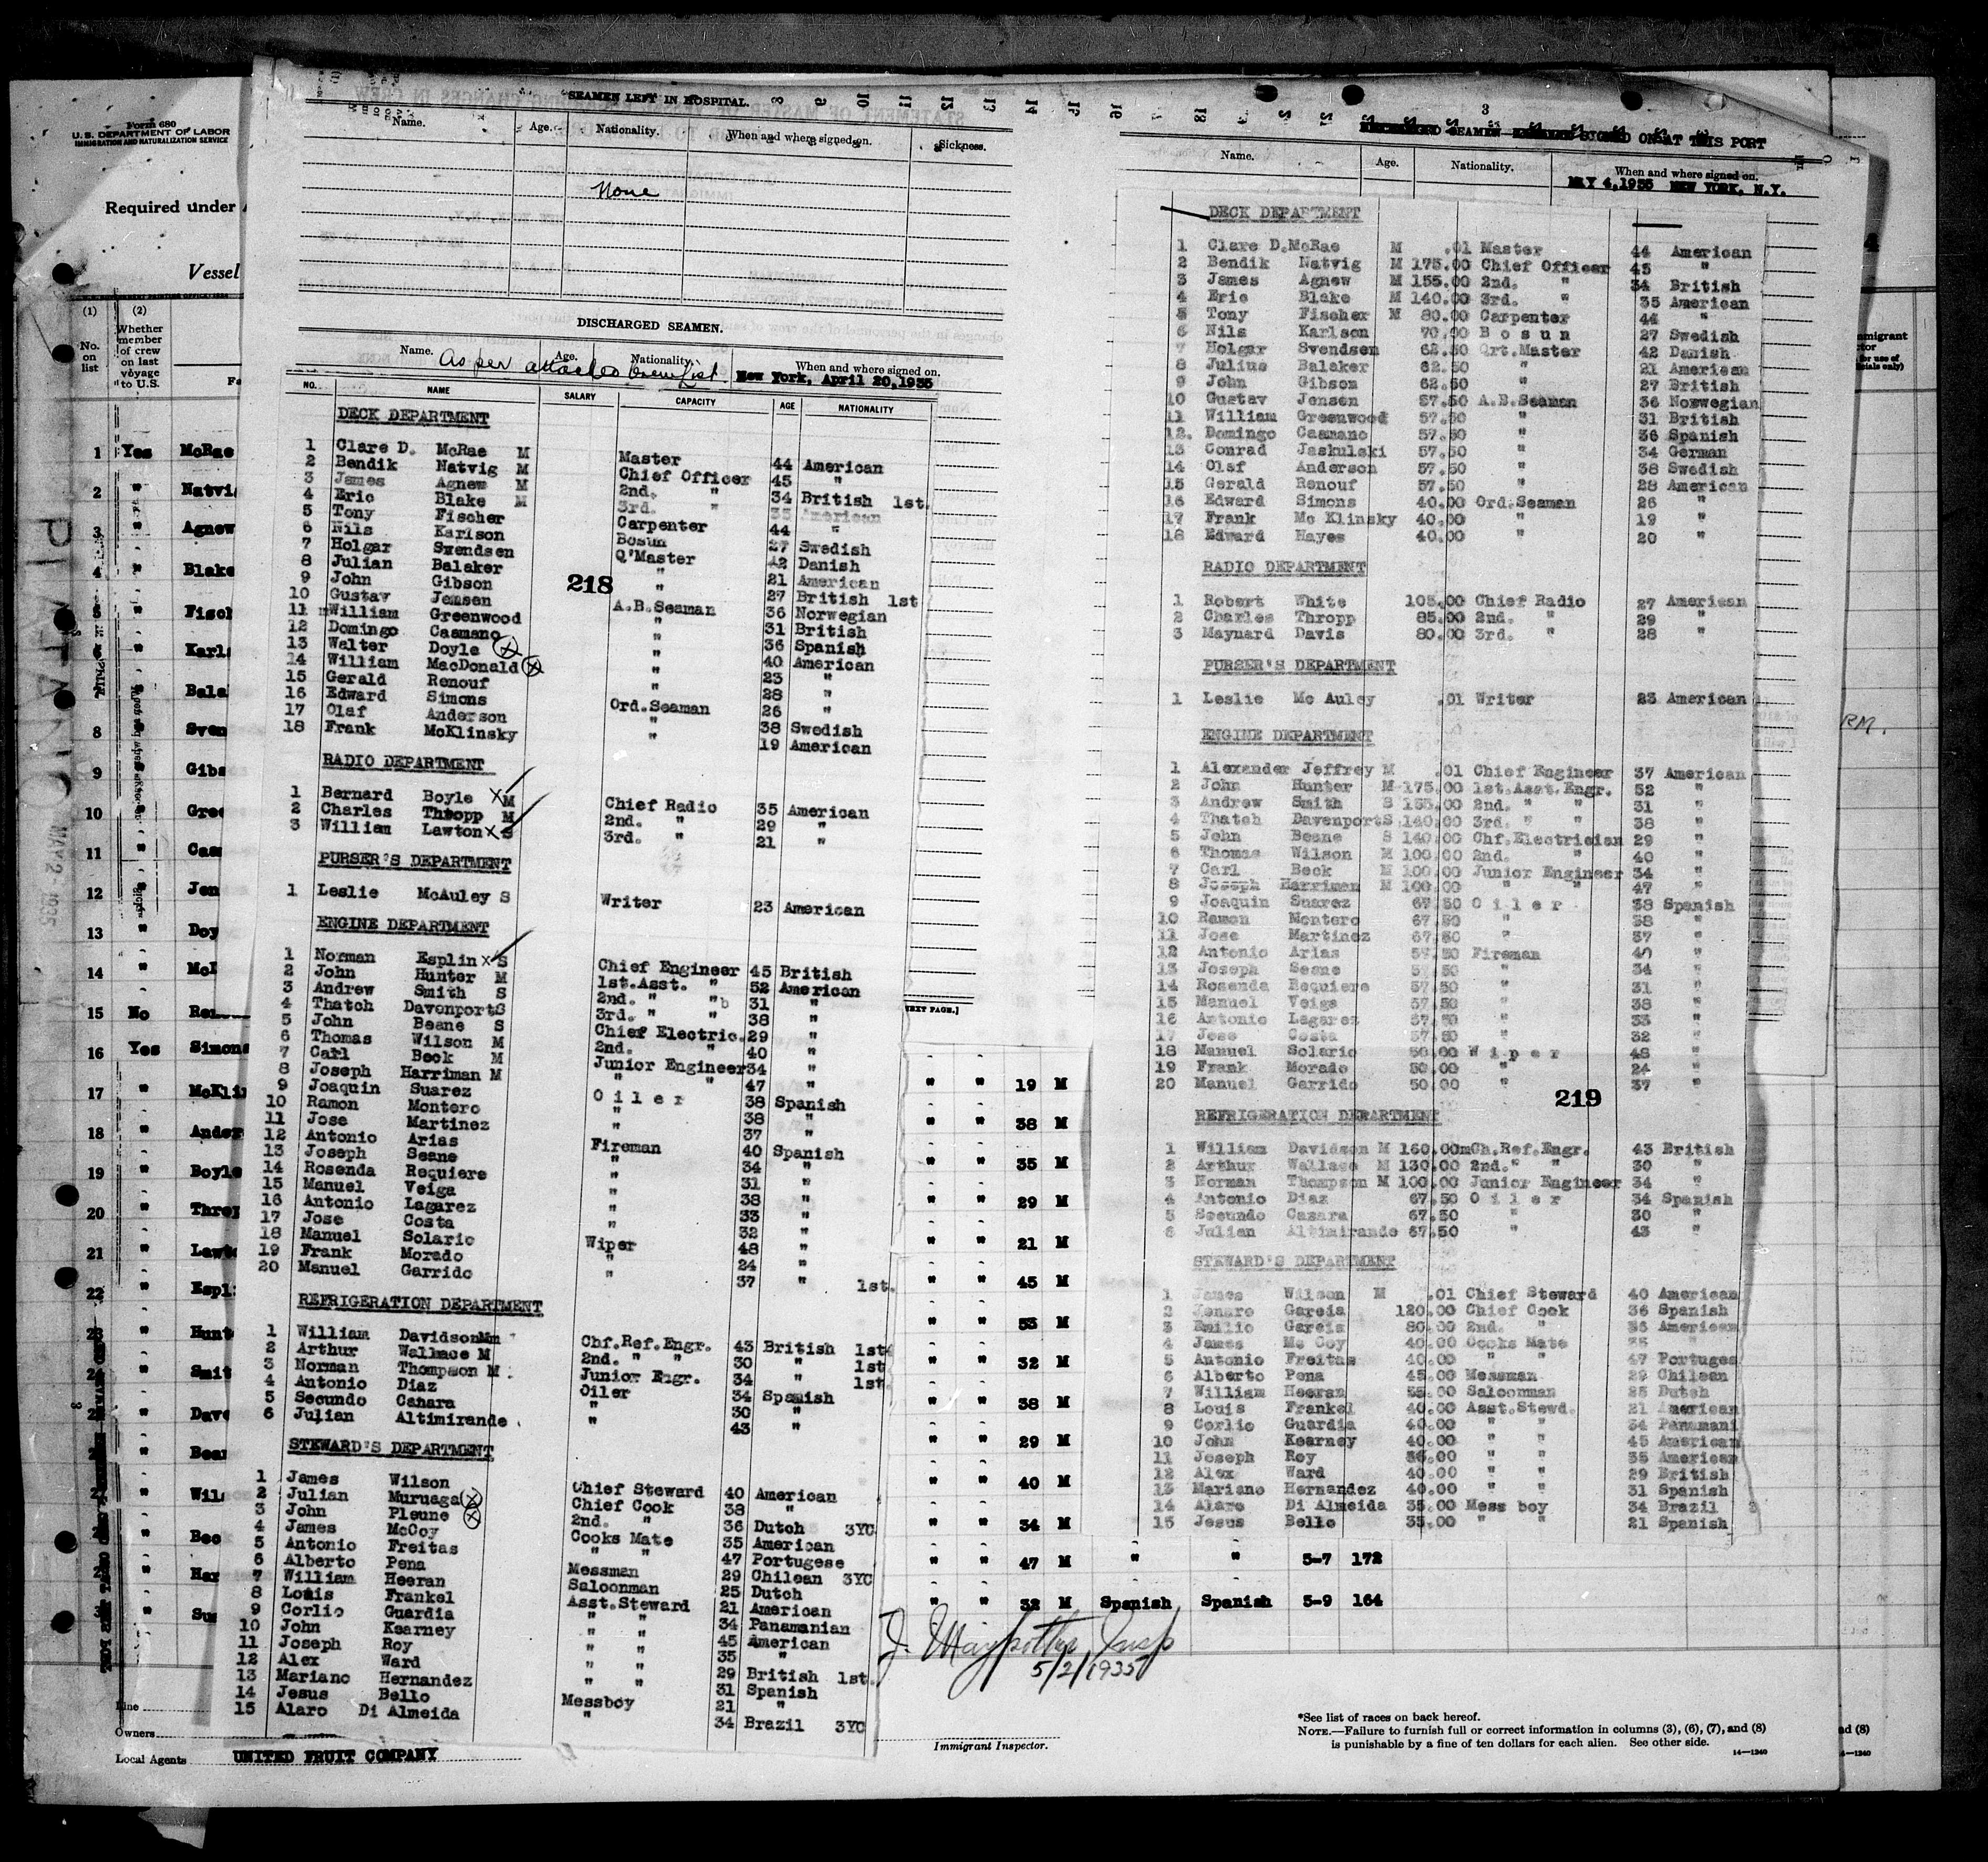 Form 680
U. S. DEPARTMENT OF LABOR
IMMIGRATION AND NATURALIZATION SERVICE
Required under
Vessel
(1) (2)
No. on list
Whether member of crew on last voyage to U.S.
1 Yes McRae
2 "
3 " Agnew
4 " Blake
5 "
6 "
7 "
8 "
9 "
10 "
11 "
12 "
13 "
14 "
15 No
16 Yes Simons
17 "
18 "
19 " Boyle
20 "
21 "
22 "
PLATANO
MAY 2 1935
Owners
Local Agents UNITED FRUIT COMPANY
SEAMEN LEFT IN HOSPITAL.
Name. Age. Nationality. When and where signed on. Sickness.
None
DISCHARGED SEAMEN.
Name. Age. Nationality. When and where signed on.
As per attached Crew List. New York, April 20, 1935
NO. NAME SALARY CAPACITY AGE NATIONALITY
DECK DEPARTMENT
1 Clare D. McRae M Master 44 American
2 Bendik Natvig M Chief Officer 45 "
3 James Agnew M 2nd. " 34 British 1st.
4 Eric Blake M 3rd. " 35 American
5 Tony Fischer Carpenter 44 "
6 Nils Karlson Bosun 27 Swedish
7 Holgar Swendsen Q'Master 42 Danish
8 Julian Balaker " 21 American
9 John Gibson " 27 British 1st
10 Gustav Jensen A.B.Seaman 36 Norwegian
11 William Greenwood " 31 British
12 Domingo Casmano " 36 Spanish
13 Walter Doyle X " 40 American
14 William MacDonald X " 23 "
15 Gerald Renouf " 28 "
16 Edward Simons Ord.Seaman 26 "
17 Olaf Anderson " 38 Swedish
18 Frank McKlinsky " 19 American
218
RADIO DEPARTMENT
1 Bernard Boyle X M Chief Radio 35 American
2 Charles Thropp M 2nd. " 29 "
3 William Lawton X S 3rd. " 21 "
PURSER'S DEPARTMENT
1 Leslie McAuley S Writer 23 American
ENGINE DEPARTMENT
1 Norman Esplin X S Chief Engineer 45 British
2 John Hunter M 1st.Asst. " 52 American
3 Andrew Smith S 2nd. " " 31 "
4 Thatch Davenport S 3rd. " " 38 "
5 John Beane S Chief Electric. 29 "
6 Thomas Wilson M 2nd. " 40 "
7 Carl Beck M Junior Engineer 34 "
8 Joseph Harriman M " " 47 "
9 Joaquin Suarez Oiler 38 Spanish
10 Ramon Montero " 38 "
11 Jose Martinez " 37 "
12 Antonio Arias Fireman 40 Spanish
13 Joseph Seane " 34 "
14 Rosenda Requiere " 31 "
15 Manuel Veiga " 38 "
16 Antonio Lagarez " 33 "
17 Jose Costa " 32 "
18 Manuel Solario Wiper 48 "
19 Frank Morado " 24 "
20 Manuel Garrido " 37 " 1st.
REFRIGERATION DEPARTMENT
1 William Davidson Chf.Ref.Engr. 43 British 1st
2 Arthur Wallace M 2nd. " " 30 " 1st
3 Norman Thompson M Junior Engr. 34 " 1st.
4 Antonio Diaz Oiler 34 Spanish
5 Secundo Cahara " 30 "
6 Julian Altimirande " 43 "
STEWARD'S DEPARTMENT
1 James Wilson Chief Steward 40 American
2 Julian Muruaga X Chief Cook 38 "
3 John Pleune X 2nd. " 36 Dutch 3YC
4 James McCoy Cooks Mate 35 American
5 Antonio Freitas " " 47 Portugese
6 Alberto Pena Messman 29 Chilean 3YC
7 William Heeran Saloonman 25 Dutch
8 Louis Frankel Asst.Steward 21 American
9 Corlio Guardia " " 34 Panamanian
10 John Kearney " " 45 American
11 Joseph Roy " " 35 "
12 Alex Ward " " 29 British 1st.
13 Mariano Hernandez " " 31 Spanish
14 Jesus Bello Messboy 21 "
15 Alaro Di Almeida " 34 Brazil 3YC
NEXT PAGE.]
" " 19 M
" " 38 M
" " 35 M
" " 29 M
" " 21 M
" " 45 M
" " 53 M
" " 32 M
" " 38 M
" " 29 M
" " 40 M
" " 34 M
" " 47 M " " 5-7 172
" " 32 M Spanish Spanish 5-9 164
5/2/1935
Immigrant Inspector.
3
SEAMEN SIGNED ON AT THIS PORT
Name. Age. Nationality. When and where signed on.
MAY 4,1935 NEW YORK, N.Y.
DECK DEPARTMENT
1 Clare D.McRae M .01 Master 44 American
2 Bendik Natvig M 175.00 Chief Officer 45 "
3 James Agnew M 155.00 2nd. " 34 British
4 Eric Blake M 140.00 3rd. " 35 American
5 Tony Fischer M 80.00 Carpenter 44 "
6 Nils Karlson 70.00 Bosun 27 Swedish
7 Holgar Svendsen 62.50 Qrt.Master 42 Danish
8 Julius Balaker 62.50 " 21 American
9 John Gibson 62.50 " 27 British
10 Gustav Jensen 57.50 A.B.Seaman 36 Norwegian
11 William Greenwood 57.50 " 31 British
12. Domingo Casmano 57.50 " 36 Spanish
13 Conrad Jaskulski 57.50 " 34 German
14 Olaf Anderson 57.50 " 38 Swedish
15 Gerald Renouf 57.50 " 28 American
16 Edward Simons 40.00 Ord.Seaman 26 "
17 Frank Mc Klinsky 40.00 " 19 "
18 Edward Hayes 40.00 " 20 "
RADIO DEPARTMENT
1 Robert White 105.00 Chief Radio 27 American
2 Charles Thropp 85.00 2nd. " 29 "
3 Maynard Davis 80.00 3rd. " 28 "
PURSER'S DEPARTMENT
1 Leslie Mc Auley .01 Writer 23 American
ENGINE DEPARTMENT
1 Alexander Jeffrey M .01 Chief Engineer 37 American
2 John Hunter M 175.00 1st.Asst.Engr. 52 "
3 Andrew Smith S 155.00 2nd. " " 31 "
4 Thatch Davenport S 140.00 3rd. " " 38 "
5 John Beane S 140.00 Chf.Electrician 29 "
6 Thomas Wilson M 100.00 2nd. " 40 "
7 Carl Beck M 100.00 Junior Engineer 34 "
8 Joseph Harriman M 100.00 " " 47 "
9 Joaquin Suarez 67.50 Oiler 38 Spanish
10 Ramon Montero 67.50 " 38 "
11 Jose Martinez 67.50 " 37 "
12 Antonio Arias 57.50 Fireman 40 "
13 Joseph Seane 57.50 " 34 "
14 Rosenda Requiere 57.50 " 31 "
15 Manuel Veiga 57.50 " 38 "
16 Antonio Lagarez 57.50 " 33 "
17 Jose Costa 57.50 " 32 "
18 Manuel Solario 50.00 Wiper 48 "
19 Frank Morado 50.00 " 24 "
20 Manuel Garrido 50.00 " 37 "
219
REFRIGERATION DEPARTMENT
1 William Davidson M 160.00mCh.Ref.Engr. 43 British
2 Arthur Wallace M 130.00 2nd." " 30 "
3 Norman Thompson M 100.00 Junior Engineer 34 "
4 Antonio Diaz 67.50 Oiler 34 Spanish
5 Secundo Cazara 67.50 " 30 "
6 Julian Altimirande 67.50 " 43 "
STEWARD'S DEPARTMENT
1 James Wilson M .01 Chief Steward 40 American
2 Jenaro Garcia 120.00 Chief Cook 36 Spanish
3 Emilio Garcia 80.00 2nd. " 36 American
4 James Mc Coy 40.00 Cooks Mate 35 "
5 Antonio Freitas 40.00 " " 47 Portuges
6 Alberto Pena 45.00 Messman 29 Chilean
7 William Heeran 35.00 Saloonman 25 Dutch
8 Louis Frankel 40.00 Asst.Stewd. 21 American
9 Corlio Guardia 40.00 " " 34 Panamani
10 John Kearney 40.00 " " 45 American
11 Joseph Roy 36.00 " " 35 American
12 Alex Ward 40.00 " " 29 British
13 Mariano Hernandez 40.00 " " 31 Spanish
14 Alaro Di Almeida 35.00 Mess boy 34 Brazil
15 Jesus Bello 35.00 " " 21 Spanish
*See list of races on back hereof.
NOTE.—Failure to furnish full or correct information in columns (3), (6), (7), and (8)
is punishable by a fine of ten dollars for each alien. See other side.
14—1240